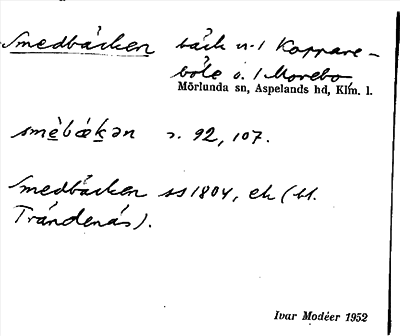 Smedbäcken bäck n. l Koppare-
böle o. l Morebo
Mörlunda sn, Aspelands hd, Klm. l.
smèbäkən s. 92, 107.
Smedbäcken ss 1804, ek (bl.
Trändenäs).
Ivar Modéer 1952